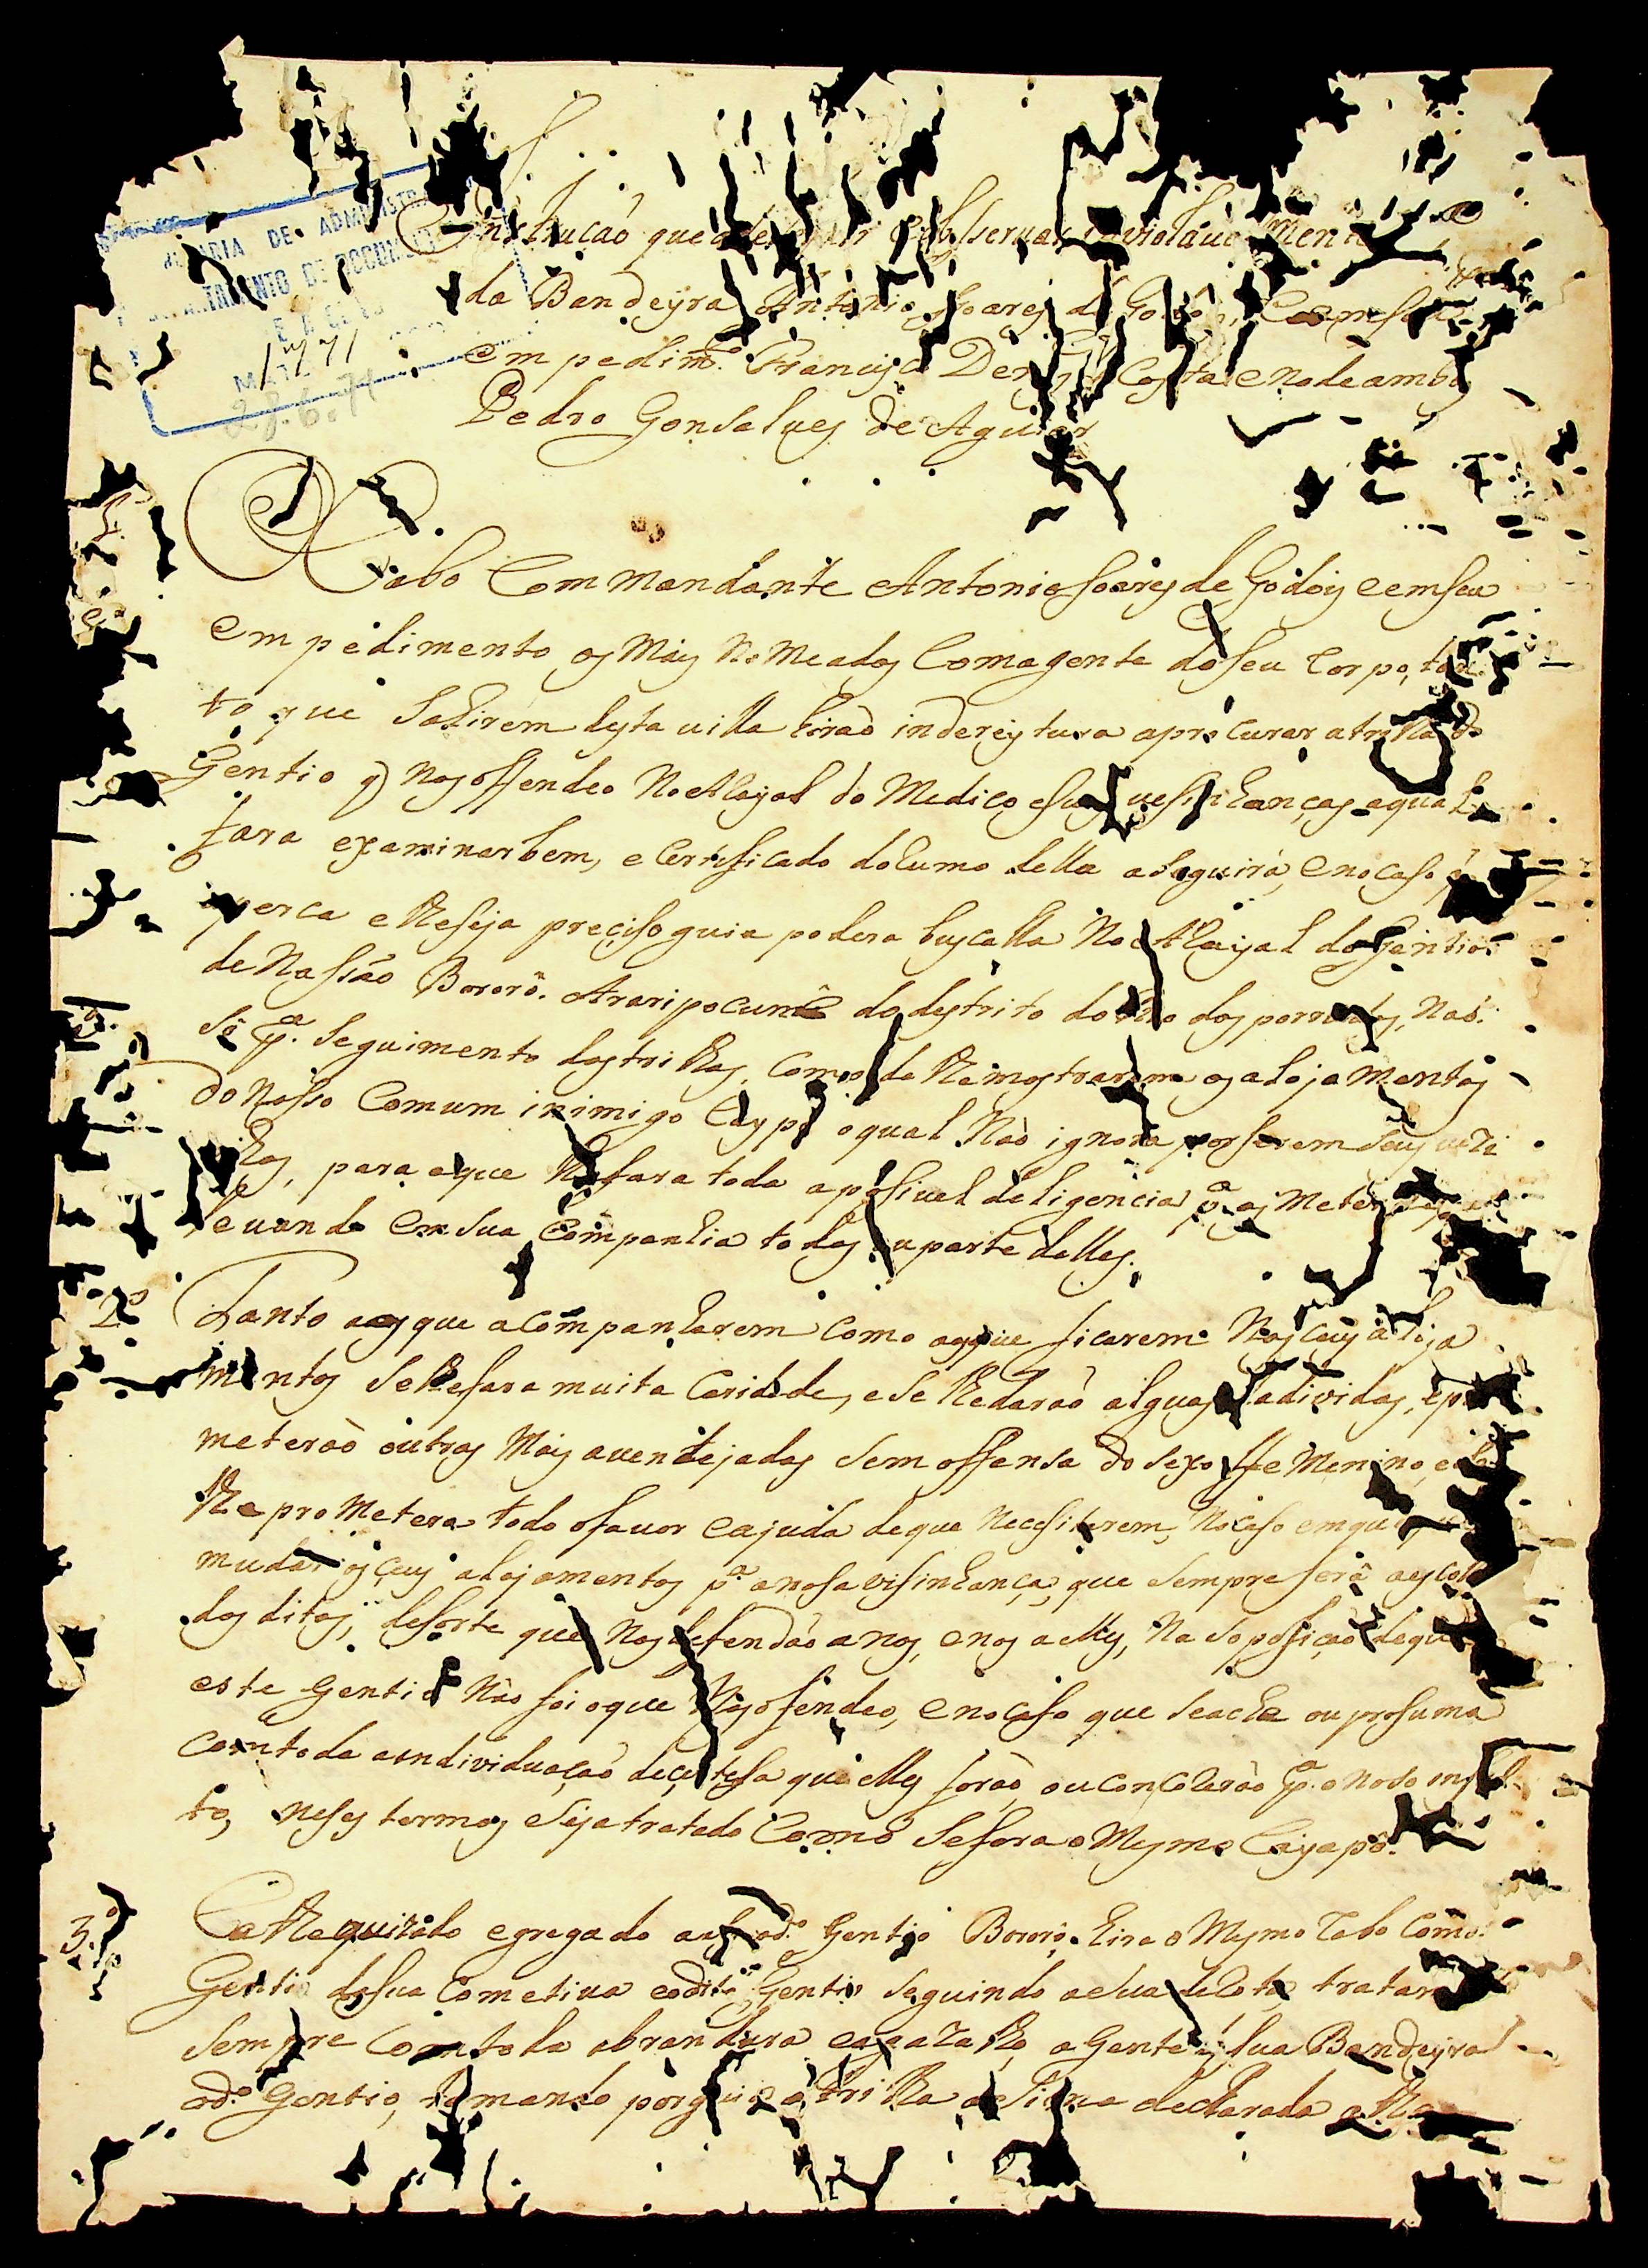 DE ADMINISTR
DE DOCUM
1771
28.6.71
Instrução que obsservar inviolavelmente
da Bandeyra Antonio Soares de Godoy,
empedimto. Francisco Costa e no de ambos
Pedro Gonsalves de Aguiar
1.
O Cabo Commandante Antonio Soares de Godoy e em seu
empedimento os Mais Nomeados Com a gente do seu Corpo, tan
to que Sahirem desta villa hirão indereytura a procurar a trilha do
Gentio q̃ Nos offendeo No Arayal do Medico e suas vesinhanças a qual
fara examinar bem, e Certificado do Rumo della a seguirá, e no caso q̃
perca e lhe seja preciso guia podera buscalla No Arayal do Gentio
de Nassão Bororô. Araripocuné do destrito do Rio dos porrudos, não
só pa. Seguimento das trilhas, Como de lhe mostrarem os alojamentos
do Nosso Comum inimigo Cayapó o qual Não ignora por serem seus vezi
nhos, para o que lhe fara toda a posivel deligencia pa. os Meter
levando em sua Companhia todos ou parte delles.
2º
Tanto aos que acompanharem Como aos que ficarem Nos ceus aloja
mentos Se lhe fara muita Caridade, e Se lhe darão alguas dadividas, e pro
meterão outras Mais aventejadas Sem offensa do Sexo ffeMenino, e
lhe proMetera todo o favor e ajuda de que Necesitarem, No caso em que
mudar os ceus alojamentos pa. a nosa visinhança, que Sempre será a escolha
dos ditos, desorte que Nos defendão a nos, e nos a elles, Na soposição de que
este Gentio Não foi o que Nos ofendeo, e no Caso que Se ache ou prosuma
Com toda a individuação de certesa que elles forão, ou conCorerão pa. o Noso insul
to, neses termos Seja tratado Como Se fora o Mesmo Cayapó.
3.º
Catthequizado e gregado ao do. Gentio Bororo, hira o Mesmo Cabo Com o
Gentio da sua Cometiva e o dito Gentio Seguindo a Sua derota, tratará
Sempre Com toda abrandura e agazalho, a Gente da sua Bandeyra
e o do. Gentio, tomando por guia a trilha asima declarada